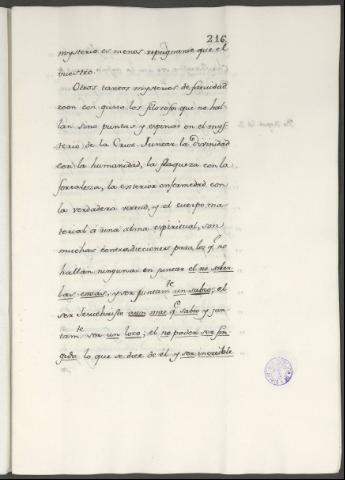 216
mysterio es menos repugnante que el
vuestro.
Otros tantos mysterios de faisedad
creen con gusto los filosofos que no hal-
lan sino puntas y espinas en el mys-
terio de la Cruz. Juntar la Divinidad
con la humanidad, la flaqueza con la
fortaleza, la exterior enfermedad con
la verdadera virtud, y el cuerpo ma-
terial á una alma espiritual, son
muchas contradicciones para los q.e no
hallan ninguna en juntar el no saber
las cosas, y ser juntam.te un sabio; el
ser Jesuchristo aun mas q.e sabio y jun-
tam.te ser un loco; el no poder ser fin-
gido lo que se dice de él y ser increible